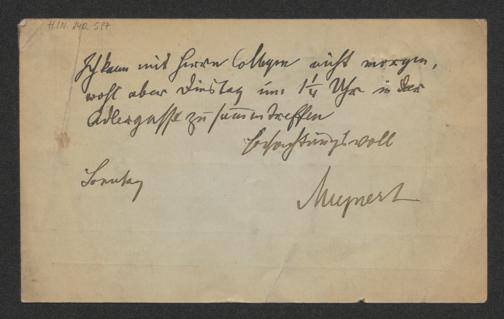 H.I.N. 240.517
Ich kann mit Herrn Collegen nicht morgen,
wohl aber Dienstag um 1/4 Uhr in der
Adlergasse zusammentreffen
Hochachtungsvoll
Sonntag
Meynert